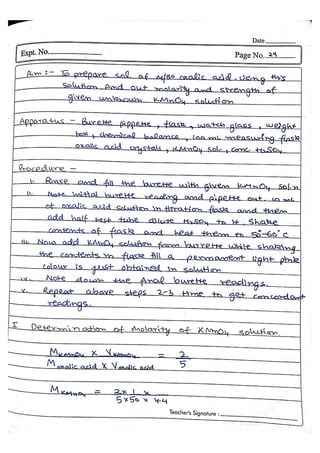 Date
Expt. No. Page No. 24
Aim:- To prepare sol of M/50 oxalic acid. Using this
solution find out molarity and strength of
given unknown KMnO4 solution
Apparatus - Burette pippette, flask, watch glass, weight
box, chemical balance, 100 mL measuring flask
oxalic acid crystals, KMnO4 solr, conc H2SO4
Procedure -
i. Rinse and fill the burette with given KMnO4 soln.
ii. Note initial burette reading and pipette out 10 mL
of oxalic acid solution in titration flask and them
add half test tube dilute H2SO4 to it Shake
contents of flask and heat them to 50-60°C
iii. Now add KMnO4 solution from burrette while shaking
the contents in flask till a permanent light pink
colour is just obtained in solution
iv. Note down the final burette readings.
v. Repeat above steps 2-3 time to get concordant
readings.
I Determination of Molarity of KMnO4 solution
MKMnO4 x VKMnO4 = 2
Moxalic acid x Voxalic acid 5
MKMnO4 = 2 x 1 x
5 x 50 x 4.4
Teacher's Signature :